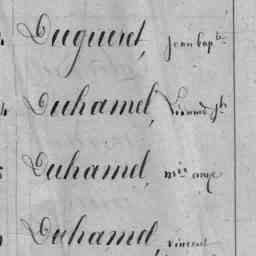 Duquenet, jean bap.te
Duhamel,
Duhamel, m.ie ange
Duhamel, vincent